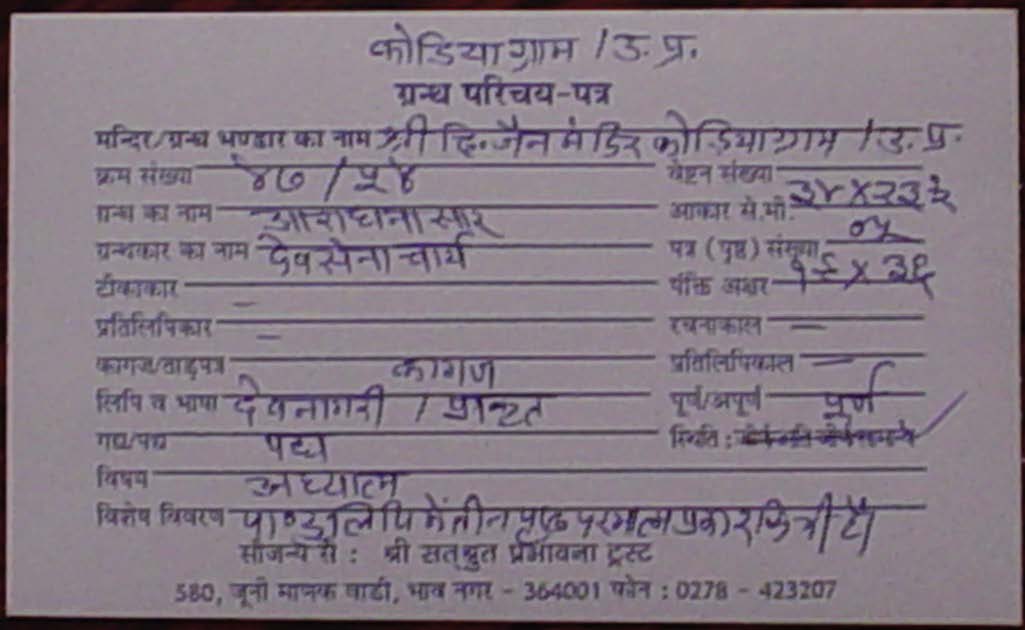 कोडियाग्राम / उ. प्र.
ग्रन्थ परिचय-पत्र
मन्दिर/ग्रन्थ भण्डार का नाम श्री दि. जैन मंदिर कोडियाग्राम / उ. प्र.
क्रम संख्या ४७ / ५४ वेष्टन संख्या
ग्रन्थ का नाम आराधनासार आकार से.मी.
ग्रन्थकार का नाम देवसेनाचार्य पत्र (पृष्ठ) संख्या ०५
टीकाकार — पंक्ति अक्षर १६ X ३६
प्रतिलिपिकार — रचनाकाल —
कागज/ताड़पत्र कागज प्रतिलिपिकाल —
लिपि व भाषा देवनागरी / प्राकृत पूर्ण/अपूर्ण पूर्ण
गद्य/पद्य पद्य स्थिति :
विषय अध्यात्म
विशेष विवरण पाण्डुलिपि में तीन पृष्ठ
सौजन्य से : श्री सत्श्रुत प्रभावना ट्रस्ट
580, जूनी माणक वाडी, भाव नगर - 364001 फोन : 0278 - 423207